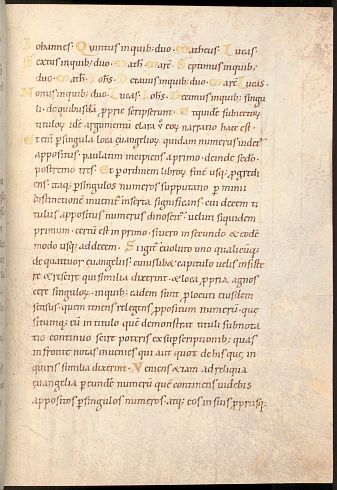 Iohannes. Quintus inquib; duo. Matheus. Lucas.
Sextus inquib; duo. Math. Marc. Septimus inquib;
duo. Math. Iohs. Octauus inquib; duo. Marc. Lucas.
Nonus inquib; duo. Lucas. Iohs. Decimus inquib; singu
li. de quibusdā, pprie scripserunt. Siquide subiectoꝝ
tituloꝝ idē argumentū clara ę eoꝝ narratio haec est.
Etenī p singula loca euangelioꝝ quidam numerus uidet
appositus. paulatim incipiens a primo. deinde secdo.
postremo tres. Et p ordinem libroꝝ fine usq; pgredi
ens. itaq; p singulos numeros supputatio p minii
distinctionē inuenit inserta significans. cui decem ti
tulis. appositus numerus dinoscit. ueluti siquidem
primum. certū est in primo. si uero in secundo. & eodē
modo usq; ad decem. Si igit euoluto uno qualicūq;
de quattuor euangeliis. cuiuslibe & capitulo uelis insiste
re & rescire qui similia dixerint. & loca ppria agnos
cere singuloꝝ. inquib; eadem sunt plocuti eiusdem
sensus. quem tenens relegens ppositum numerū. que
situmq; eū in titulo quē demonstrat tituli subnota
tio. continuo scire poteris ex suprscriptionib; quas
in fronte notas inuenies qui aut quot de his que in
quiris similia dixerint. Veniens etiam ad reliqua
euangelia p eundē numerū quē contines uidebis
appositos p singulos numeros. atq; eos in suis ppriisq;